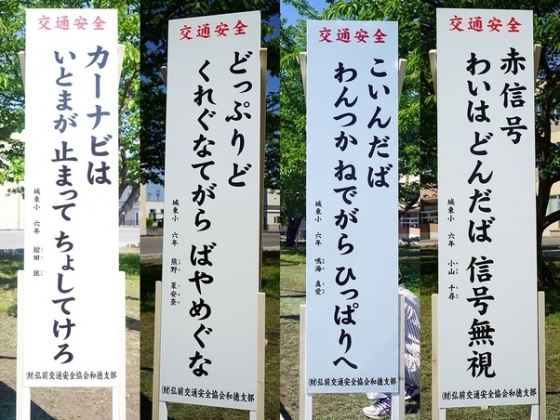 交通安全
カーナビは
いとまが 止まって ちょしてけろ
城東小 六年 舘田 組
(財)弘前交通安全協会和徳支部
交通安全
どっぷりど
くれぐなてがら ばやめぐな
城東小 六年 熊野 茉安奈
(財)弘前交通安全協会和徳支部
交通安全
こいんだば
わんつか ねでがら ひっぱりへ
城東小 六年 鳴海 真愛
(財)弘前交通安全協会和徳支部
交通安全
赤信号
わいは どんだば 信号無視
城東小 六年 小山 千尋
(財)弘前交通安全協会和徳支部